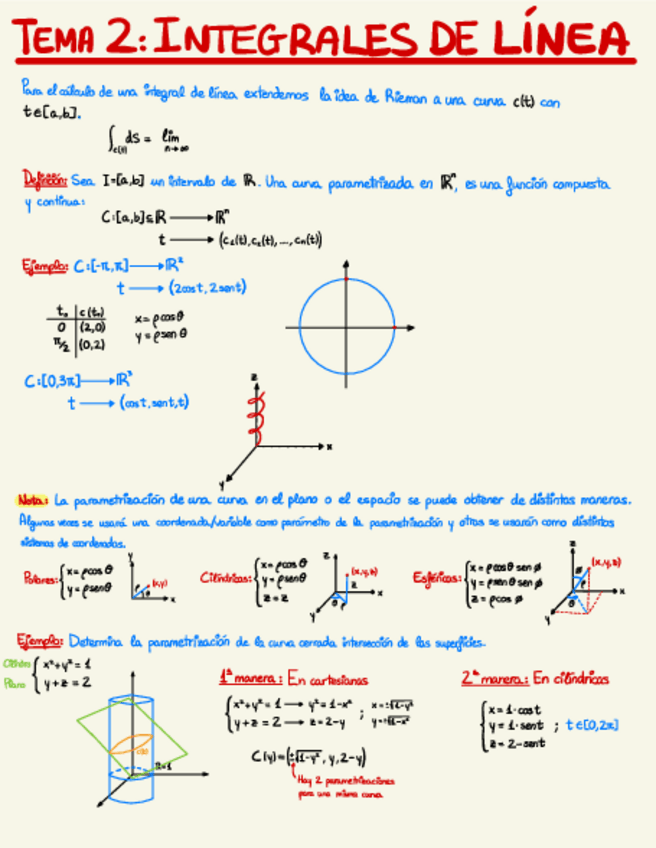 TEMA 2: INTEGRALES DE LÍNEA
Para el cálculo de una integral de línea extendemos la idea de Rieman a una curva c(t) con
t∈[a,b].
∫c(t) ds = lim n→∞
Definición: Sea I=[a,b] un intervalo de ℝ. Una curva parametrizada en ℝⁿ, es una función compuesta
y continua:
C:[a,b]⊆ℝ → ℝⁿ
t → (c₁(t), c₂(t), ..., cₙ(t))
Ejemplo: C:[-π,π] → ℝ²
t → (2cost, 2sent)
t₀ | c(t₀)
0 | (2,0)
π/2 | (0,2)
x=ρcosθ
y=ρsenθ
C:[0,3π] → ℝ³
t → (cost, sent, t)
z
x
y
Nota: La parametrización de una curva en el plano o el espacio se puede obtener de distintas maneras.
Algunas veces se usará una coordenada/variable como parámetro de la parametrización y otras se usarán como distintos
sistemas de coordenadas.
Polares: { x=ρcosθ
y=ρsenθ
y
(x,y)
ρ
θ
x
Cilíndricas: { x=ρcosθ
y=ρsenθ
z=z
z
(x,y,z)
x
y
Esféricas: { x=ρcosθ senφ
y=ρsenθ senφ
z=ρcosφ
z
(x,y,z)
x
y
Ejemplo: Determina la parametrización de la curva cerrada intersección de las superficies.
Cilindro { x²+y²=1
Plano y+z=2
R=1
1ª manera: En cartesianas
{ x²+y²=1 → y²=1-x² ; x=±√1-y²
y+z=2 → z=2-y ; y=±√1-x²
C(y)=(±√1-y², y, 2-y)
Hay 2 parametrizaciones
para una misma curva
2ª manera: En cilíndricas
{ x=1·cost
y=1·sent ; t∈[0,2π]
z=2-sent